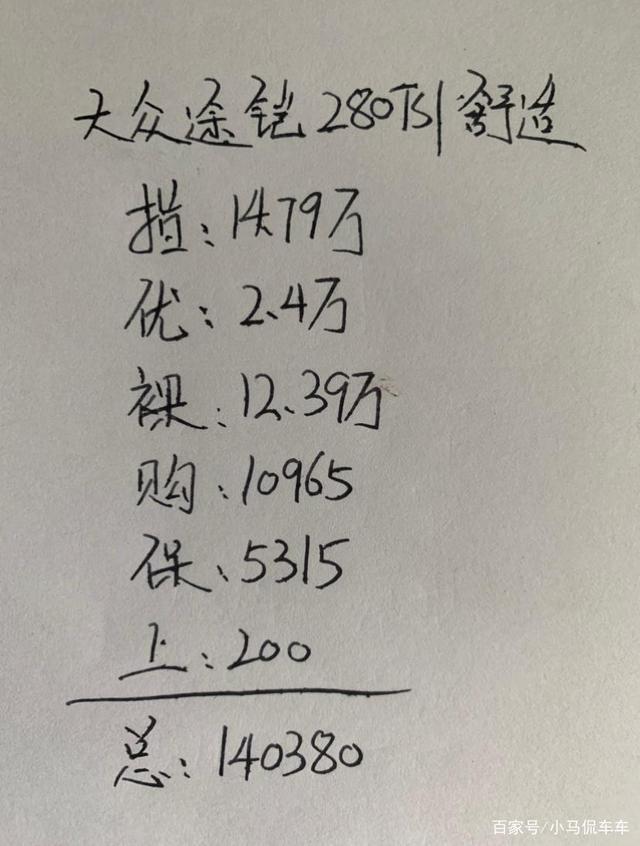 大众途铠280TSI舒适
指:14.79万
优:2.4万
裸:12.39万
购:10965
保:5315
上:200
总:140380
百家号/小马侃车车